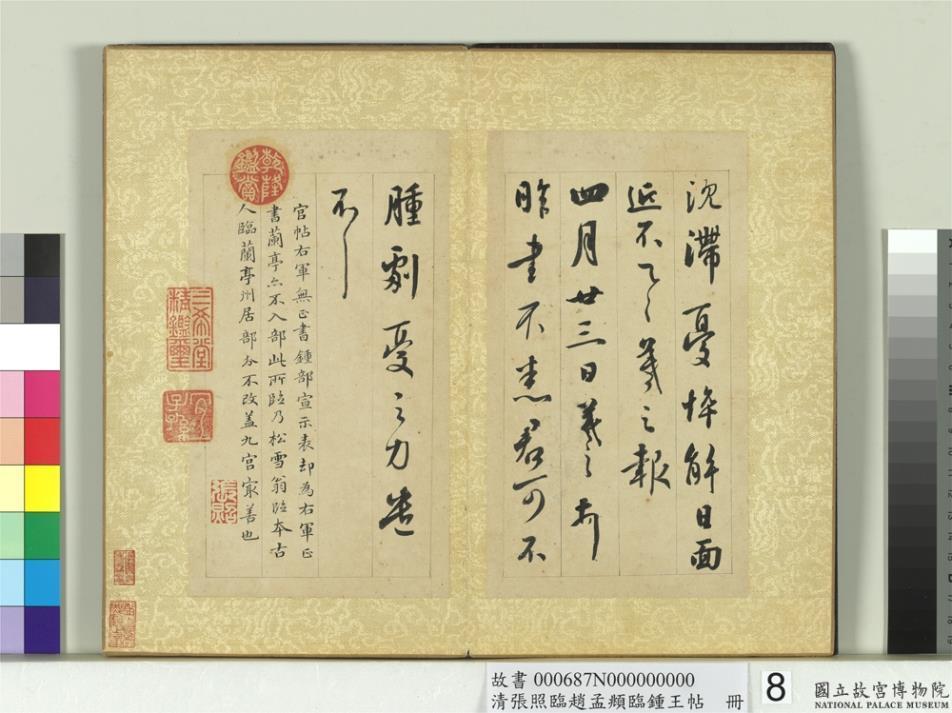 沈滯憂悴解日面
近不一一羲之報
四月廿三日羲之頓
昨書不悉君可不
腫劇憂之力遣
不一
官帖右軍無正書鍾部宣示表却為右軍正
書蘭亭亦不入部此所臨乃松雪翁臨本古
人臨蘭亭州居部分不改蓋九宮最善也
乾隆
鑑賞
三希堂
精鑑璽
宜
子孫
張照
故書 000687N000000000
清張照臨趙孟頫臨鍾王帖 冊
8
國立故宮博物院
NATIONAL PALACE MUSEUM